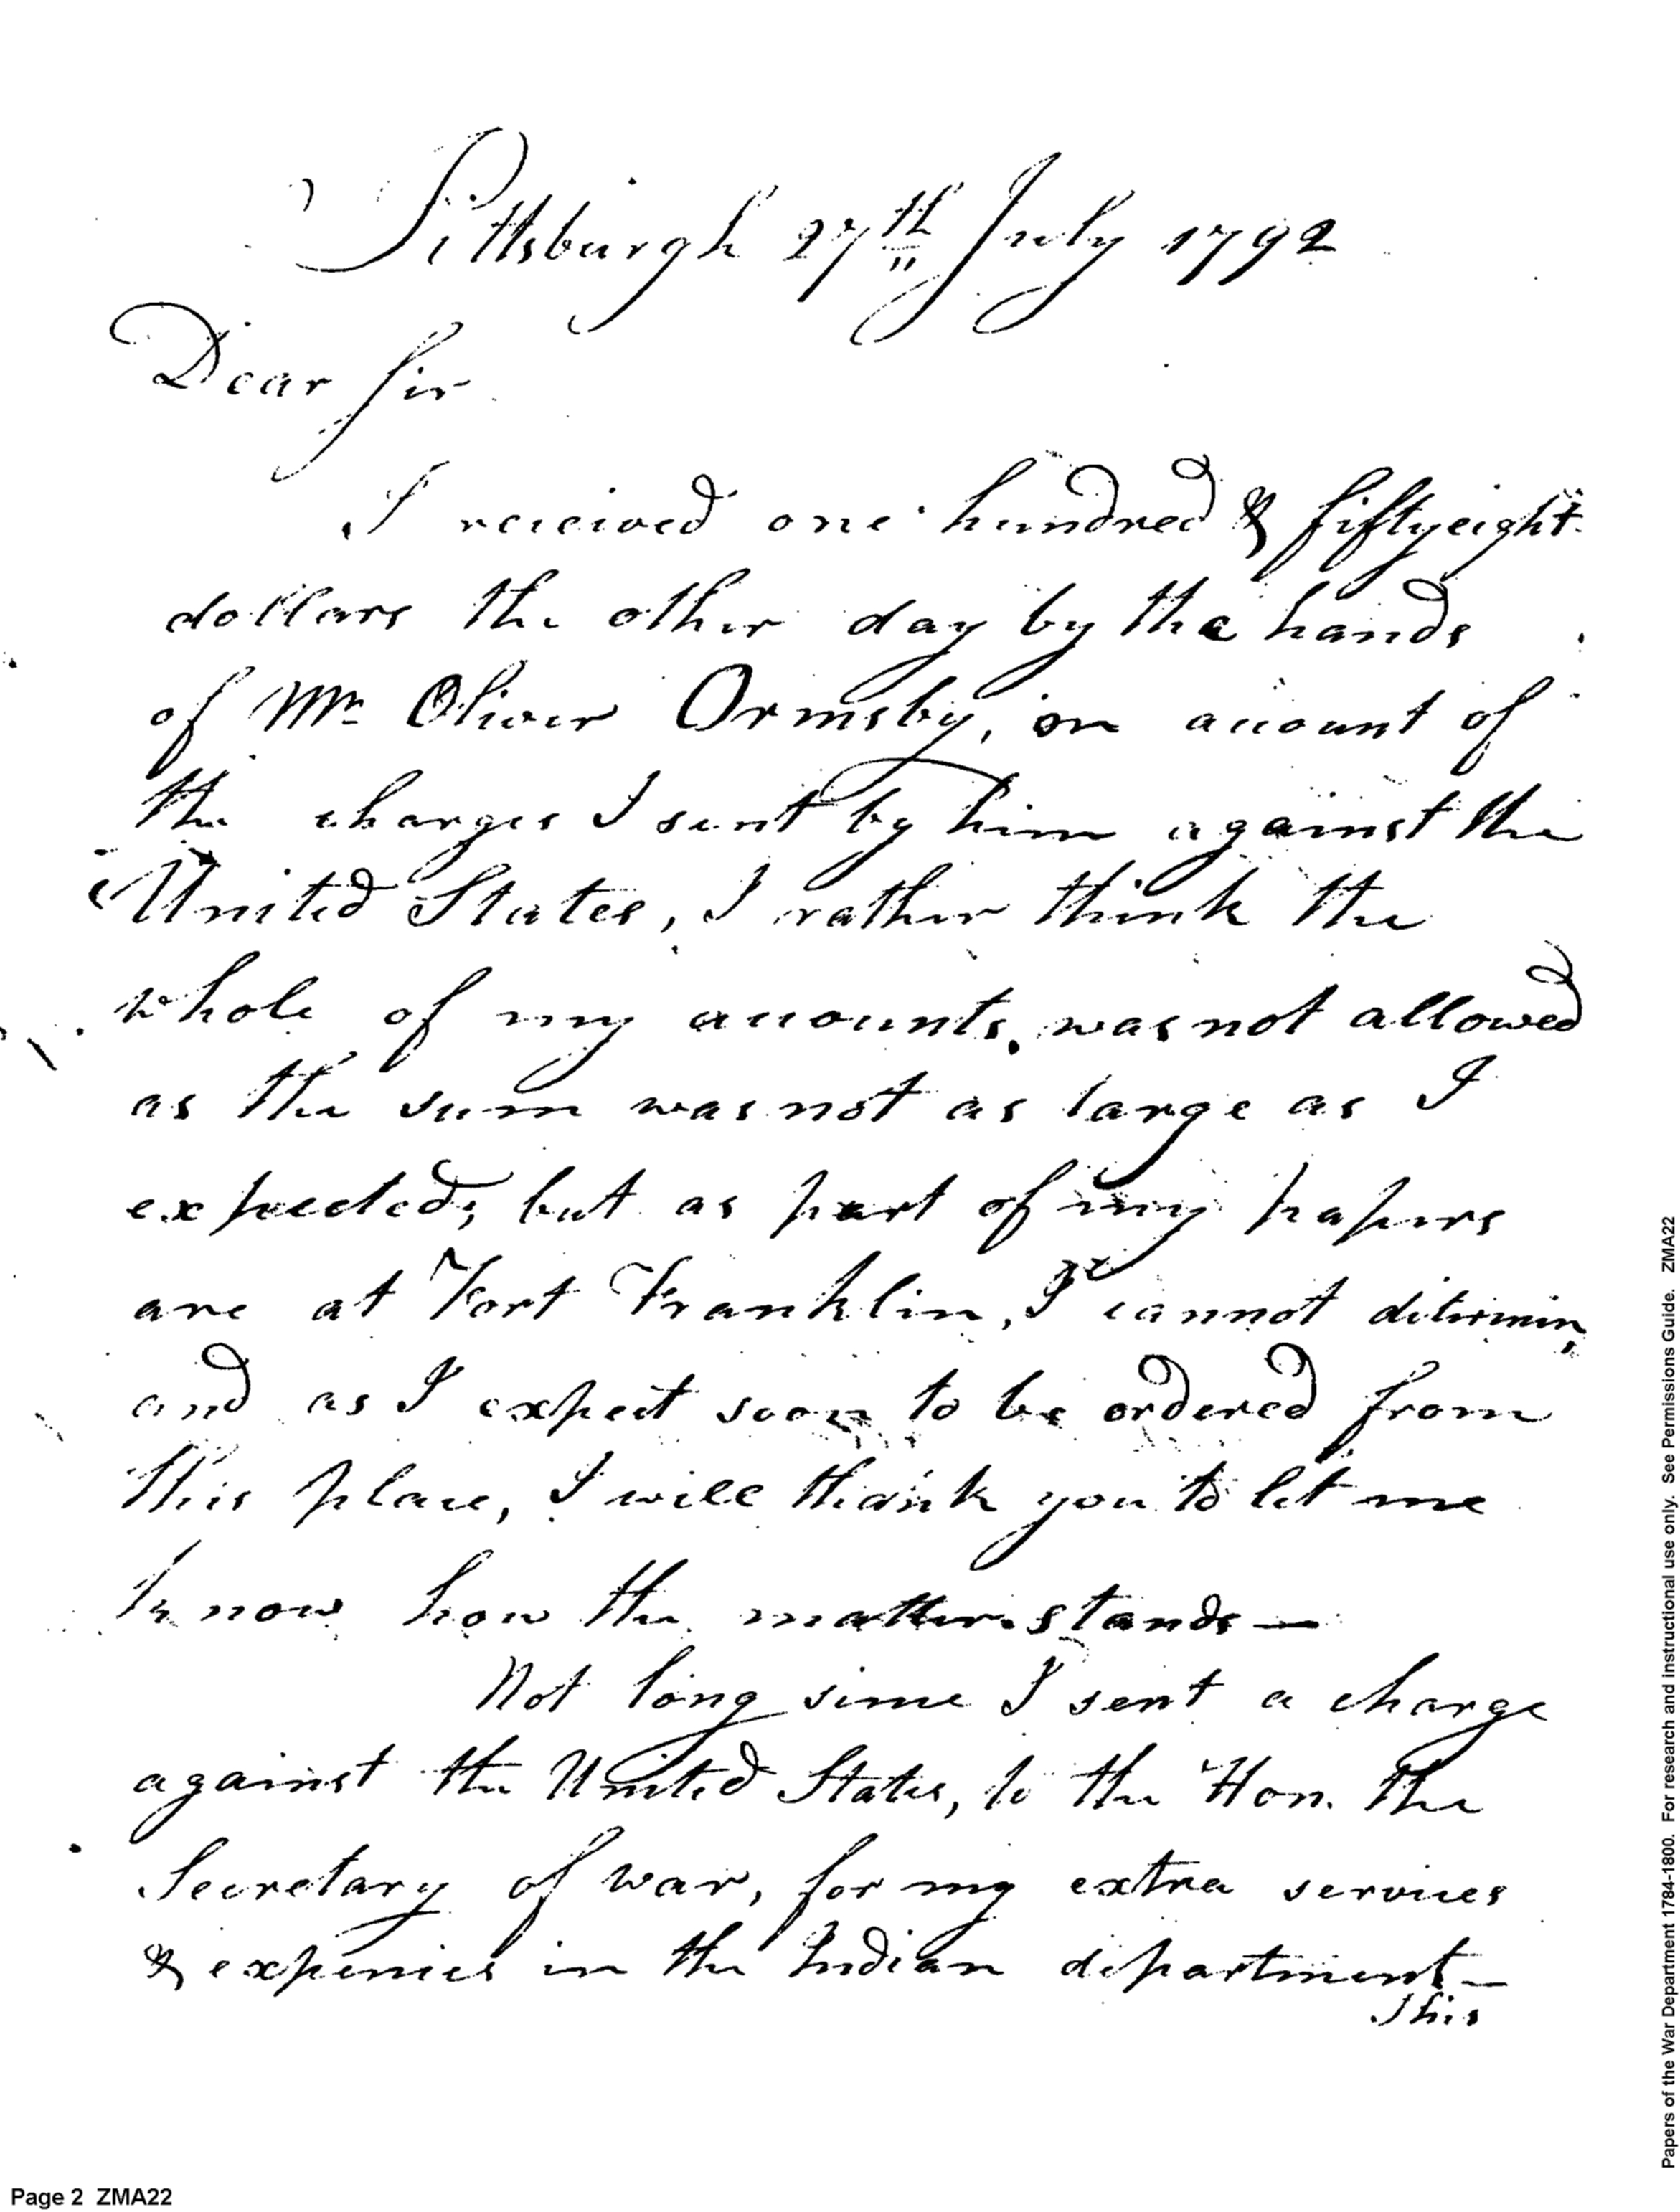 Pittsburgh 27th July 1792
Dear Sir
I received one hundred & fiftyeight
dollars the other day by the hands
of Mr Oliver Ormsby, on account of
the charges I sent by him against the
United States, I rather think the
whole of my accounts, was not allowed
as the sum was not as large as I
expected; but as part of my papers
are at Fort Franklin, I cannot determin,
and as I expect soon to be ordered from
this place, I will thank you to let me
know how the matter stands —
Not long since I sent a charge
against the United States, to the Hon. the
Secretary of war, for my extra services
& expences in the Indian department —
This
Page 2 ZMA22
Papers of the War Department 1784-1800. For research and instructional use only. See Permissions Guide. ZMA22